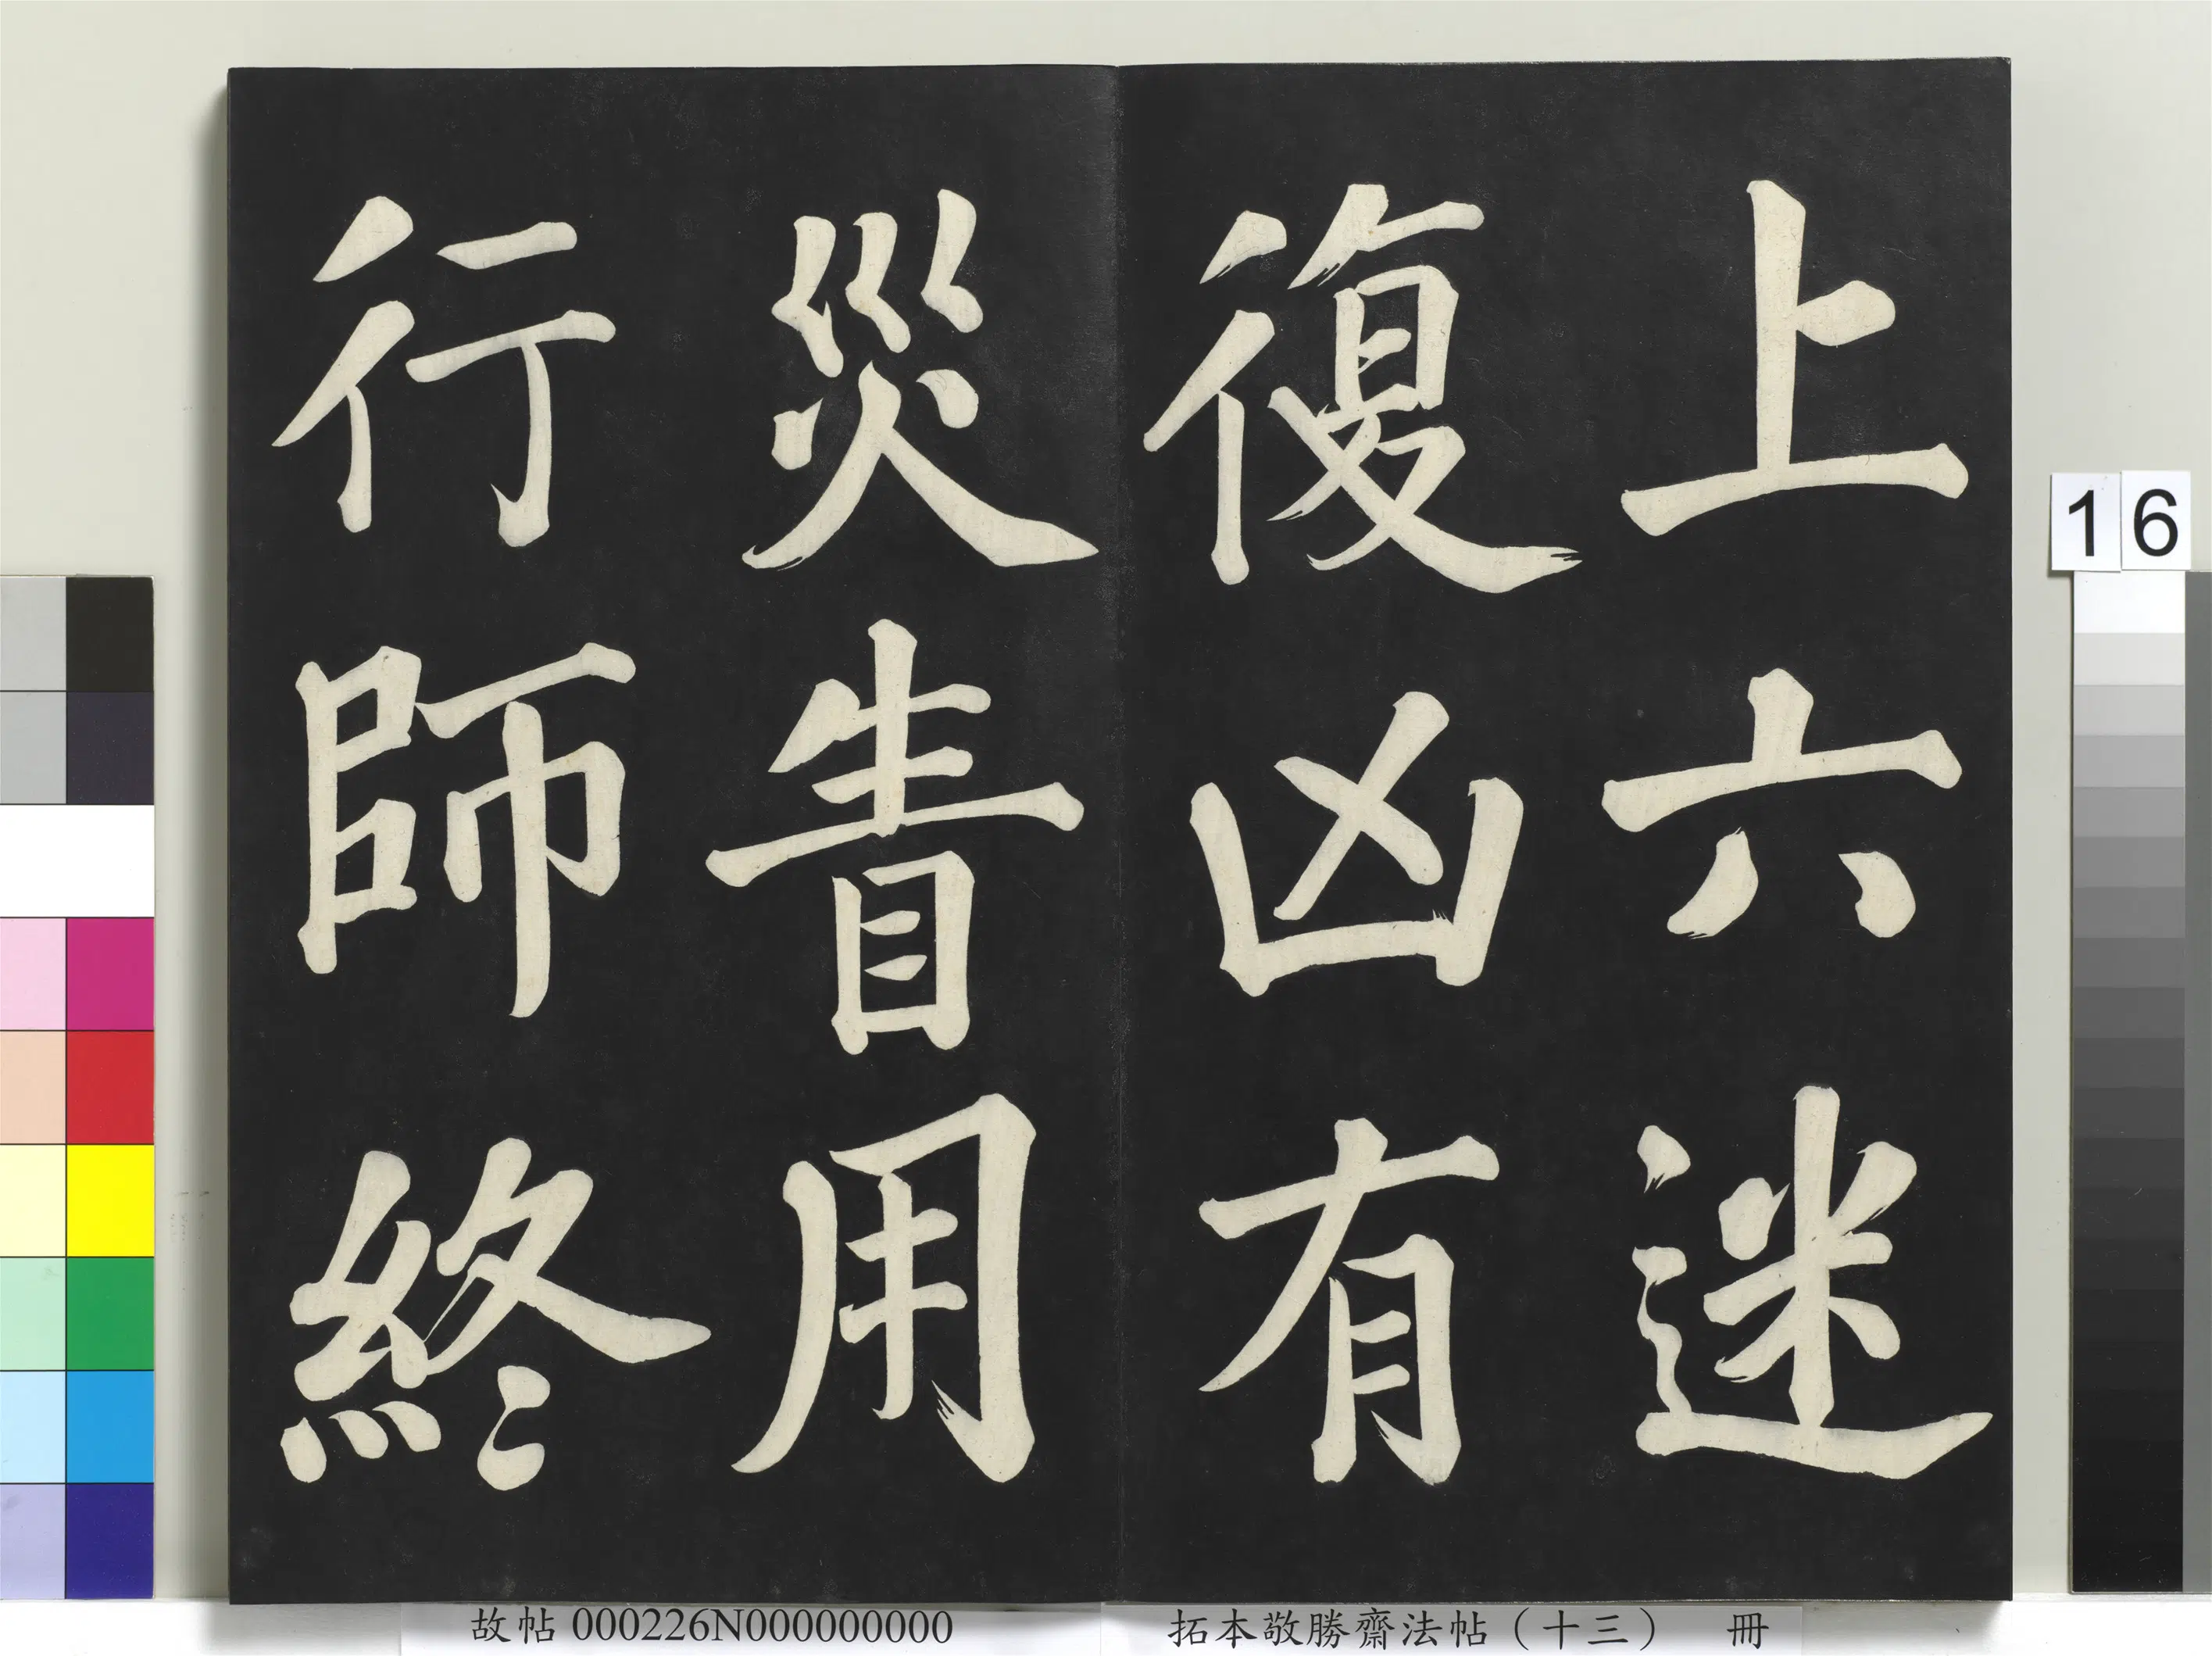 上六迷
復凶有
災眚用
行師終
16
故帖 000226N000000000
拓本敬勝齋法帖（十三） 冊